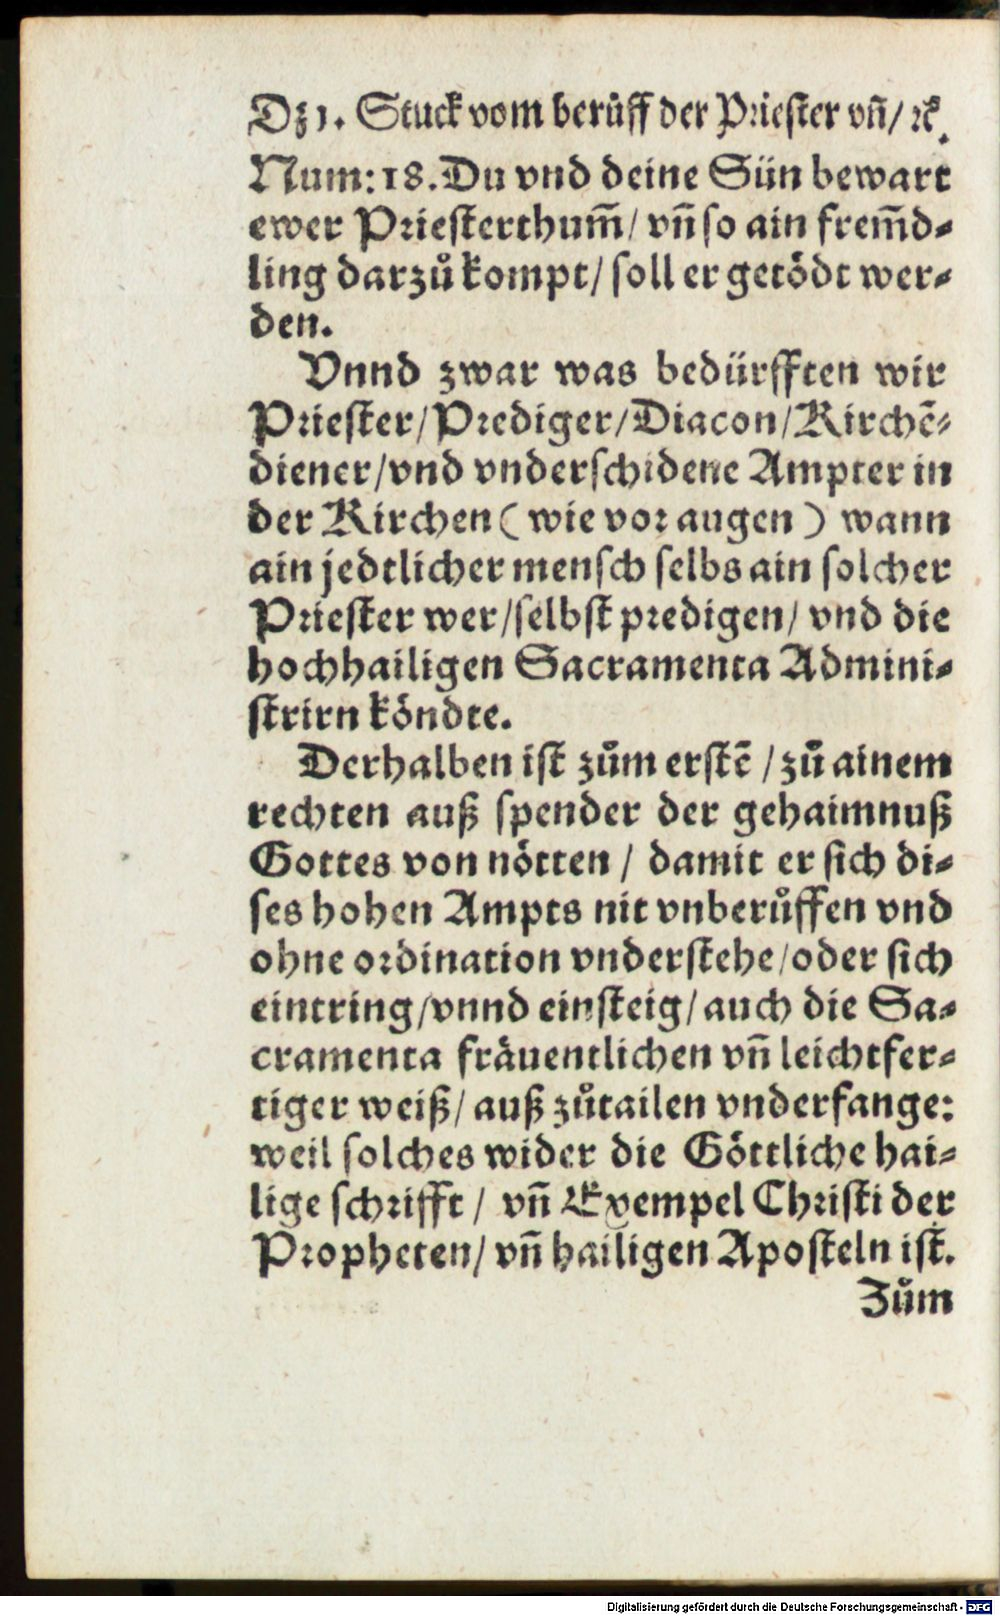 Dz 1. Stuck vom berůff der Priester vñ/ ꝛc.
Num: 18. Du vnd deine Sün bewart
ewer Priesterthum̃/ vñ so ain frem̃d-
ling darzů kompt/ soll er getödt wer-
den.
Vnnd zwar was bedürfften wir
Priester/ Prediger/ Diacon/ Kirchẽ-
diener/ vnd vnderschidene Ampter in
der Kirchen ( wie vor augen ) wann
ain jedtlicher mensch selbs ain solcher
Priester wer/ selbst predigen/ vnd die
hochhailigen Sacramenta Admini-
strirn köndte.
Derhalben ist zům erstẽ / zů ainem
rechten auß spender der gehaimnuß
Gottes von nötten / damit er sich di-
ses hohen Ampts nit vnberůffen vnd
ohne ordination vnderstehe/ oder sich
eintring/ vnnd einsteig/ auch die Sa-
cramenta fräuentlichen vñ leichtfer-
tiger weiß/ auß zůtailen vnderfange:
weil solches wider die Göttliche hai-
lige schrifft / vñ Exempel Christi der
Propheten/ vñ hailigen Aposteln ist.
Zům
Digitalisierung gefördert durch die Deutsche Forschungsgemeinschaft - DFG